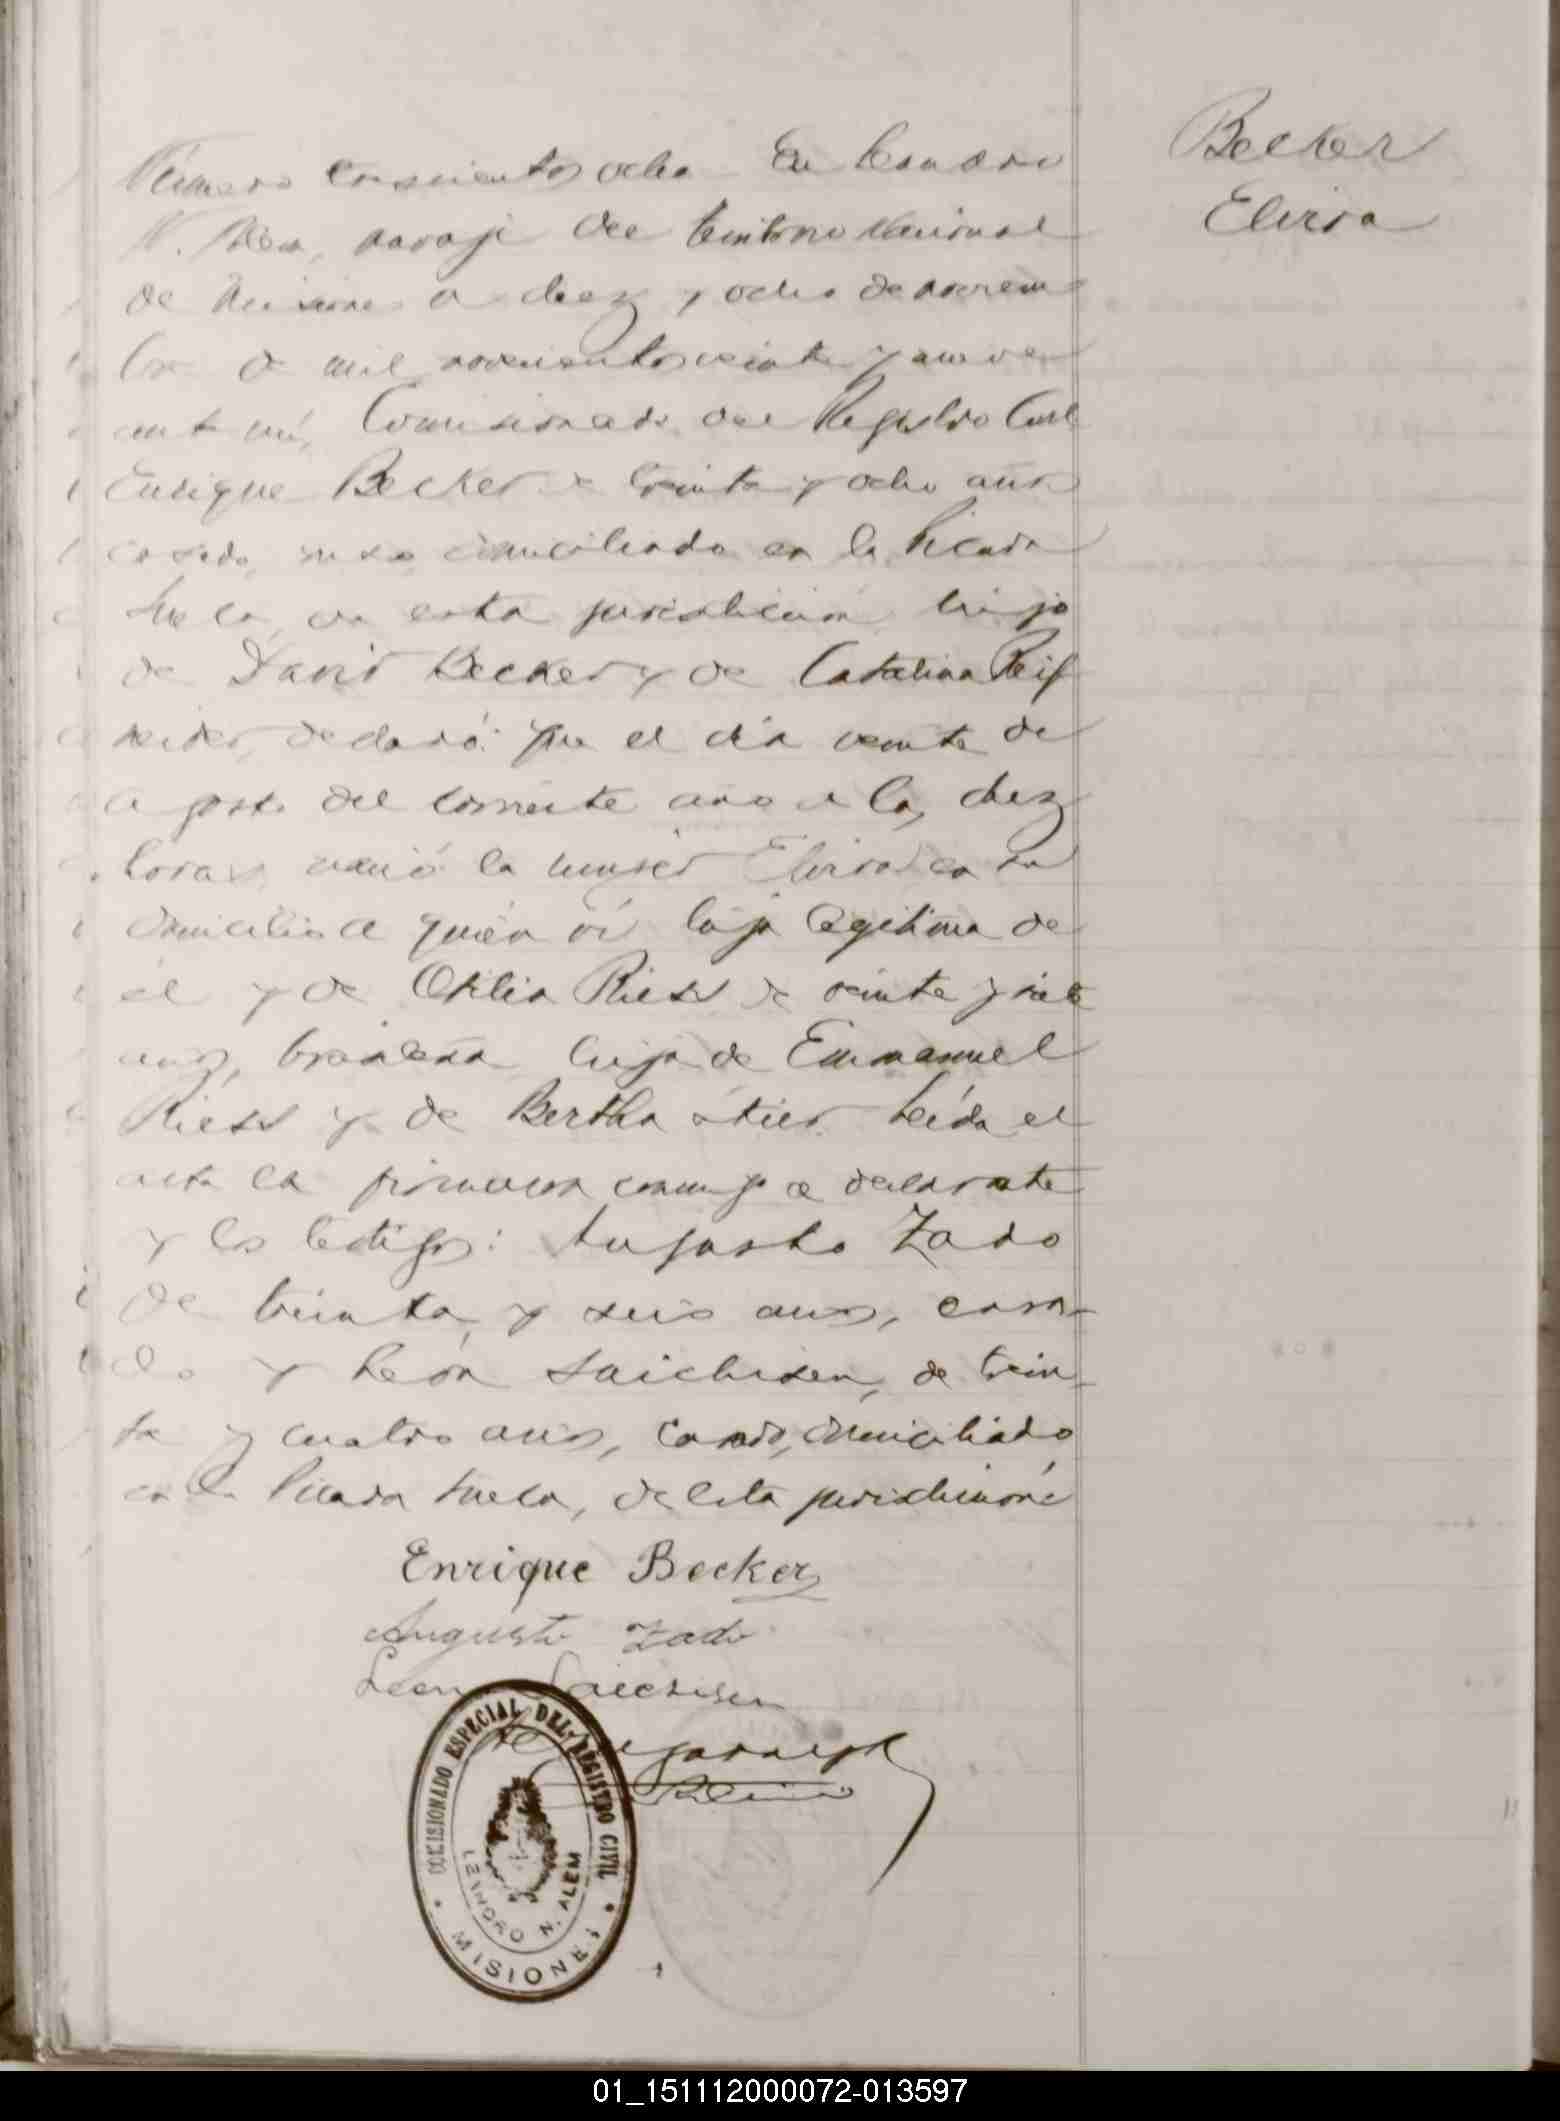 Becker
Elvira
Número ochocientos ocho En Leandro
N. Alem, paraje del territorio Nacional
de Misiones a diez y ocho de noviem
bre de mil novecientos veinte y nueve
ante mí, Comisionado del Registro Civil
Enrique Becker de treinta y ocho años
casado, ruso, domiciliado en la Picada
en esta jurisdicción, hijo
de David Becker y de Catalina Reif
neider, declaró: que el día veinte de
agosto del corriente año a las diez
horas nació la mujer Elvira en su
domicilio a quién ví hija legítima de
él y de Otilia Riess de veinte y siete
años, brasileña hija de Emmanuel
Riess y de Bertha Stier. Leída el
acta la firmaron conmigo el declarante
y los testigos: Augusto Zado
de treinta y seis años, casa-
do y León Saichisen, de trein-
ta y cuatro años, casado, domiciliado
en la Picada de esta jurisdicción
Enrique Becker
Augusto Zado
Leon Saichisen
COMISIONADO ESPECIAL DEL REGISTRO CIVIL
LEANDRO N. ALEM
MISIONES
01_151112000072-013597